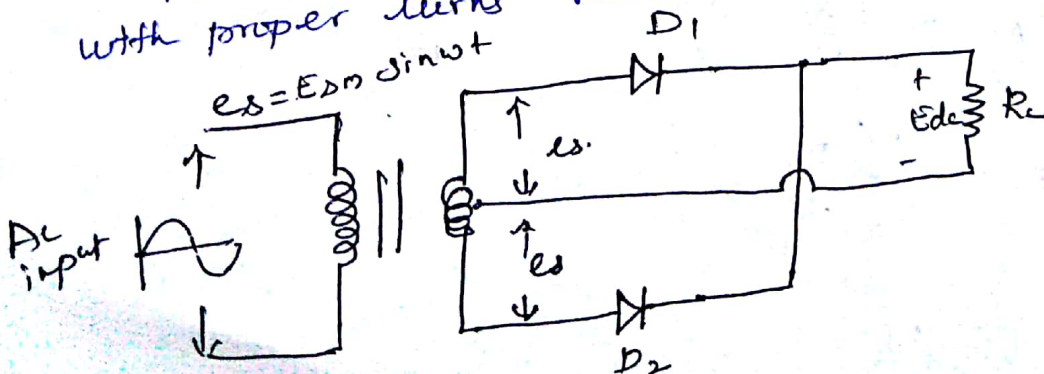 with proper turns
es = Esm sinωt
D1
es.
+
Edc
RL
-
AC
input
es
D2